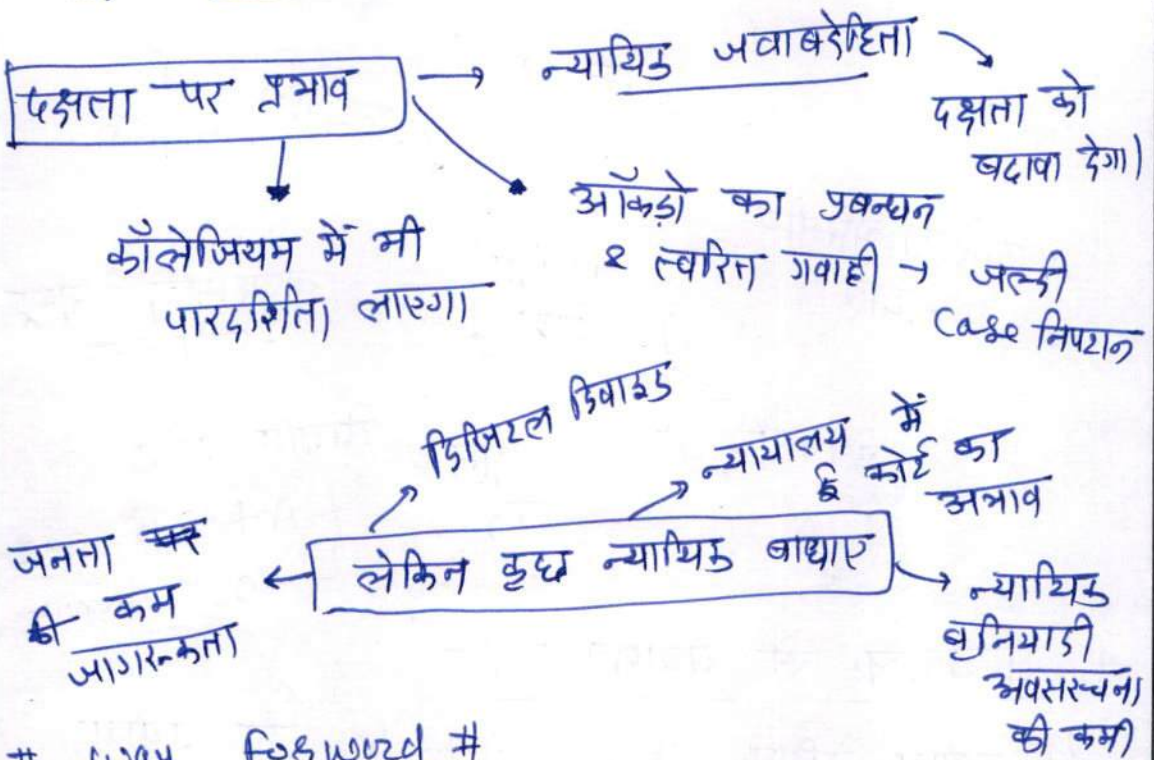 दक्षता पर प्रभाव → न्यायिक जवाबदेहिता
दक्षता को
बढावा देगा।
कॉलेजियम में भी
पारदर्शिता लाएगा
ऑकड़ो का प्रबन्धन
& त्वरित गवाही → जल्दी
Case निपटान
डिजिटल डिवाइड
न्यायालय में
ई कोर्ट का
अभाव
जनता
की कम
जागरूकता
लेकिन कुछ न्यायिक बाधाए
न्यायिक
बुनियादी
अवसरचना
की कमी
# way forword #